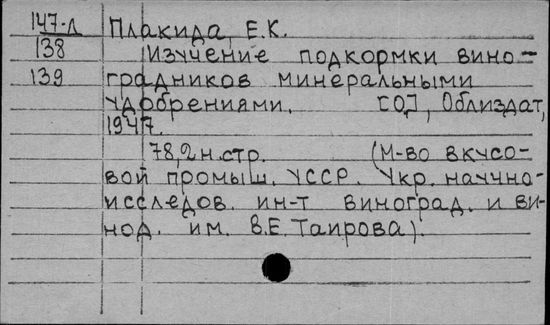 147-Л Плакида, Е.К.
138 Изучение подкормки вино-
139 градников минеральными
удобрениями. [О.], Облиздат,
1947.
78,2 н.стр. (М-во вкусо-
вой промыш. УССР. Укр. научно-
исследов. ин-т виноград. и ви-
нод. им. В.Е. Таирова).